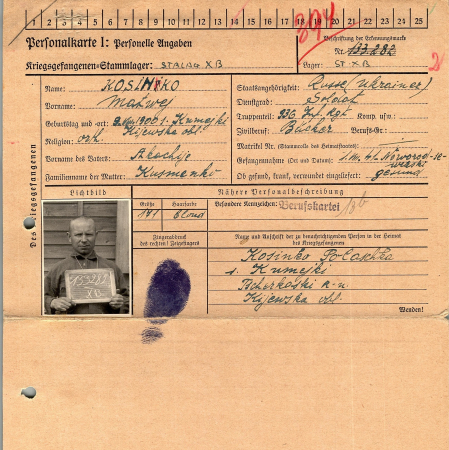 1 2 3 4 5 6 7 8 9 10 11 12 13 14 15 16 17 18 19 20 21 22 23 24 25
Personalkarte I: Personelle Angaben
Kriegsgefangenen-Stammlager: STALAG XB
Beschriftung der Erkennungsmarke
Nr. 133.282
Lager: ST-XB
Des Kriegsgefangenen
Name: KOSINKO
Vorname: Matwej
Geburtstag und -ort: 1900 s. Kumejki
Kijewska obl.
Religion: orth.
Vorname des Vaters:
Familienname der Mutter: Kusmenko
Staatsangehörigkeit: Russe (Ukrainer)
Dienstgrad: Soldat
Truppenteil: 236 Inf. Rgt. Komp. usw.:
Zivilberuf: Bäcker Berufs-Gr.:
Matrikel Nr. (Stammrolle des Heimatstaates):
Gefangennahme (Ort und Datum):
Ob gesund, krank, verwundet eingeliefert: gesund
Lichtbild
Nähere Personalbeschreibung
Größe
Haarfarbe
Besondere Kennzeichen:
171
blond
Berufskartei
Fingerabdruck
des rechten! Zeigefingers
Name und Anschrift der zu benachrichtigenden Person in der Heimat
des Kriegsgefangenen
Kosinko
s. Kumejki
Tscherkaski r-n
Kijewska obl.
Wenden!
XB